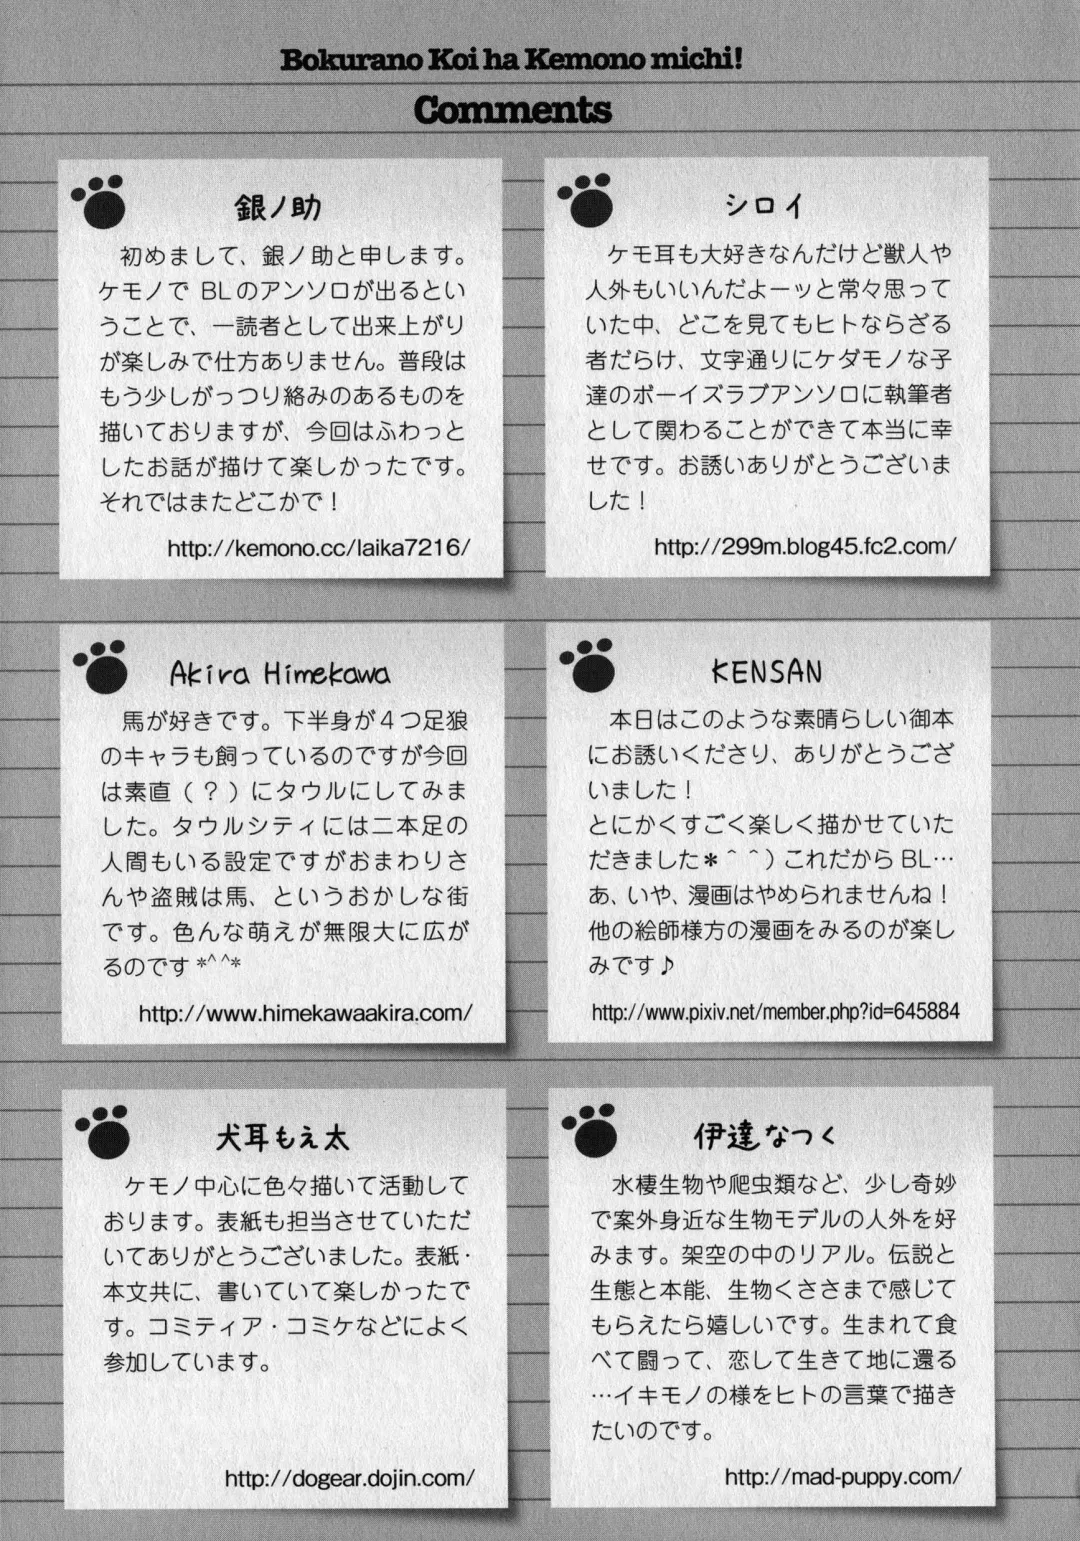 Bokurano Koi ha Kemono michi!
Comments
銀ノ助
初めまして、銀ノ助と申します。
ケモノで BLのアンソロが出るとい
うことで、一読者として出来上がり
が楽しみで仕方ありません。普段は
もう少しがっつり絡みのあるものを
描いておりますが、今回はふわっと
したお話が描けて楽しかったです。
それではまたどこかで！
http://kemono.cc/laika7216/
シロイ
ケモ耳も大好きなんだけど獣人や
人外もいいんだよーッと常々思って
いた中、どこを見てもヒトならざる
者だらけ、文字通りにケダモノな子
達のボーイズラブアンソロに執筆者
として関わることができて本当に幸
せです。お誘いありがとうございま
した！
http://299m.blog45.fc2.com/
Akira Himekawa
馬が好きです。下半身が４つ足狼
のキャラも飼っているのですが今回
は素直（？）にタウルにしてみま
した。タウルシティには二本足の
人間もいる設定ですがおまわりさ
んや盗賊は馬、というおかしな街
です。色んな萌えが無限大に広が
るのです *^ ^*
http://www.himekawaakira.com/
KENSAN
本日はこのような素晴らしい御本
にお誘いくださり、ありがとうござ
いました！
とにかくすごく楽しく描かせていた
だきました＊＾＾）これだから BL…
あ、いや、漫画はやめられませんね！
他の絵師様方の漫画をみるのが楽し
みです♪
http://www.pixiv.net/member.php?id=645884
犬耳もえ太
ケモノ中心に色々描いて活動して
おります。表紙も担当させていただ
いてありがとうございました。表紙・
本文共に、書いていて楽しかったで
す。コミティア・コミケなどによく
参加しています。
http://dogear.dojin.com/
伊達なつく
水棲生物や爬虫類など、少し奇妙
で案外身近な生物モデルの人外を好
みます。架空の中のリアル。伝説と
生態と本能、生物くささまで感じて
もらえたら嬉しいです。生まれて食
べて闘って、恋して生きて地に還る
…イキモノの様をヒトの言葉で描き
たいのです。
http://mad-puppy.com/